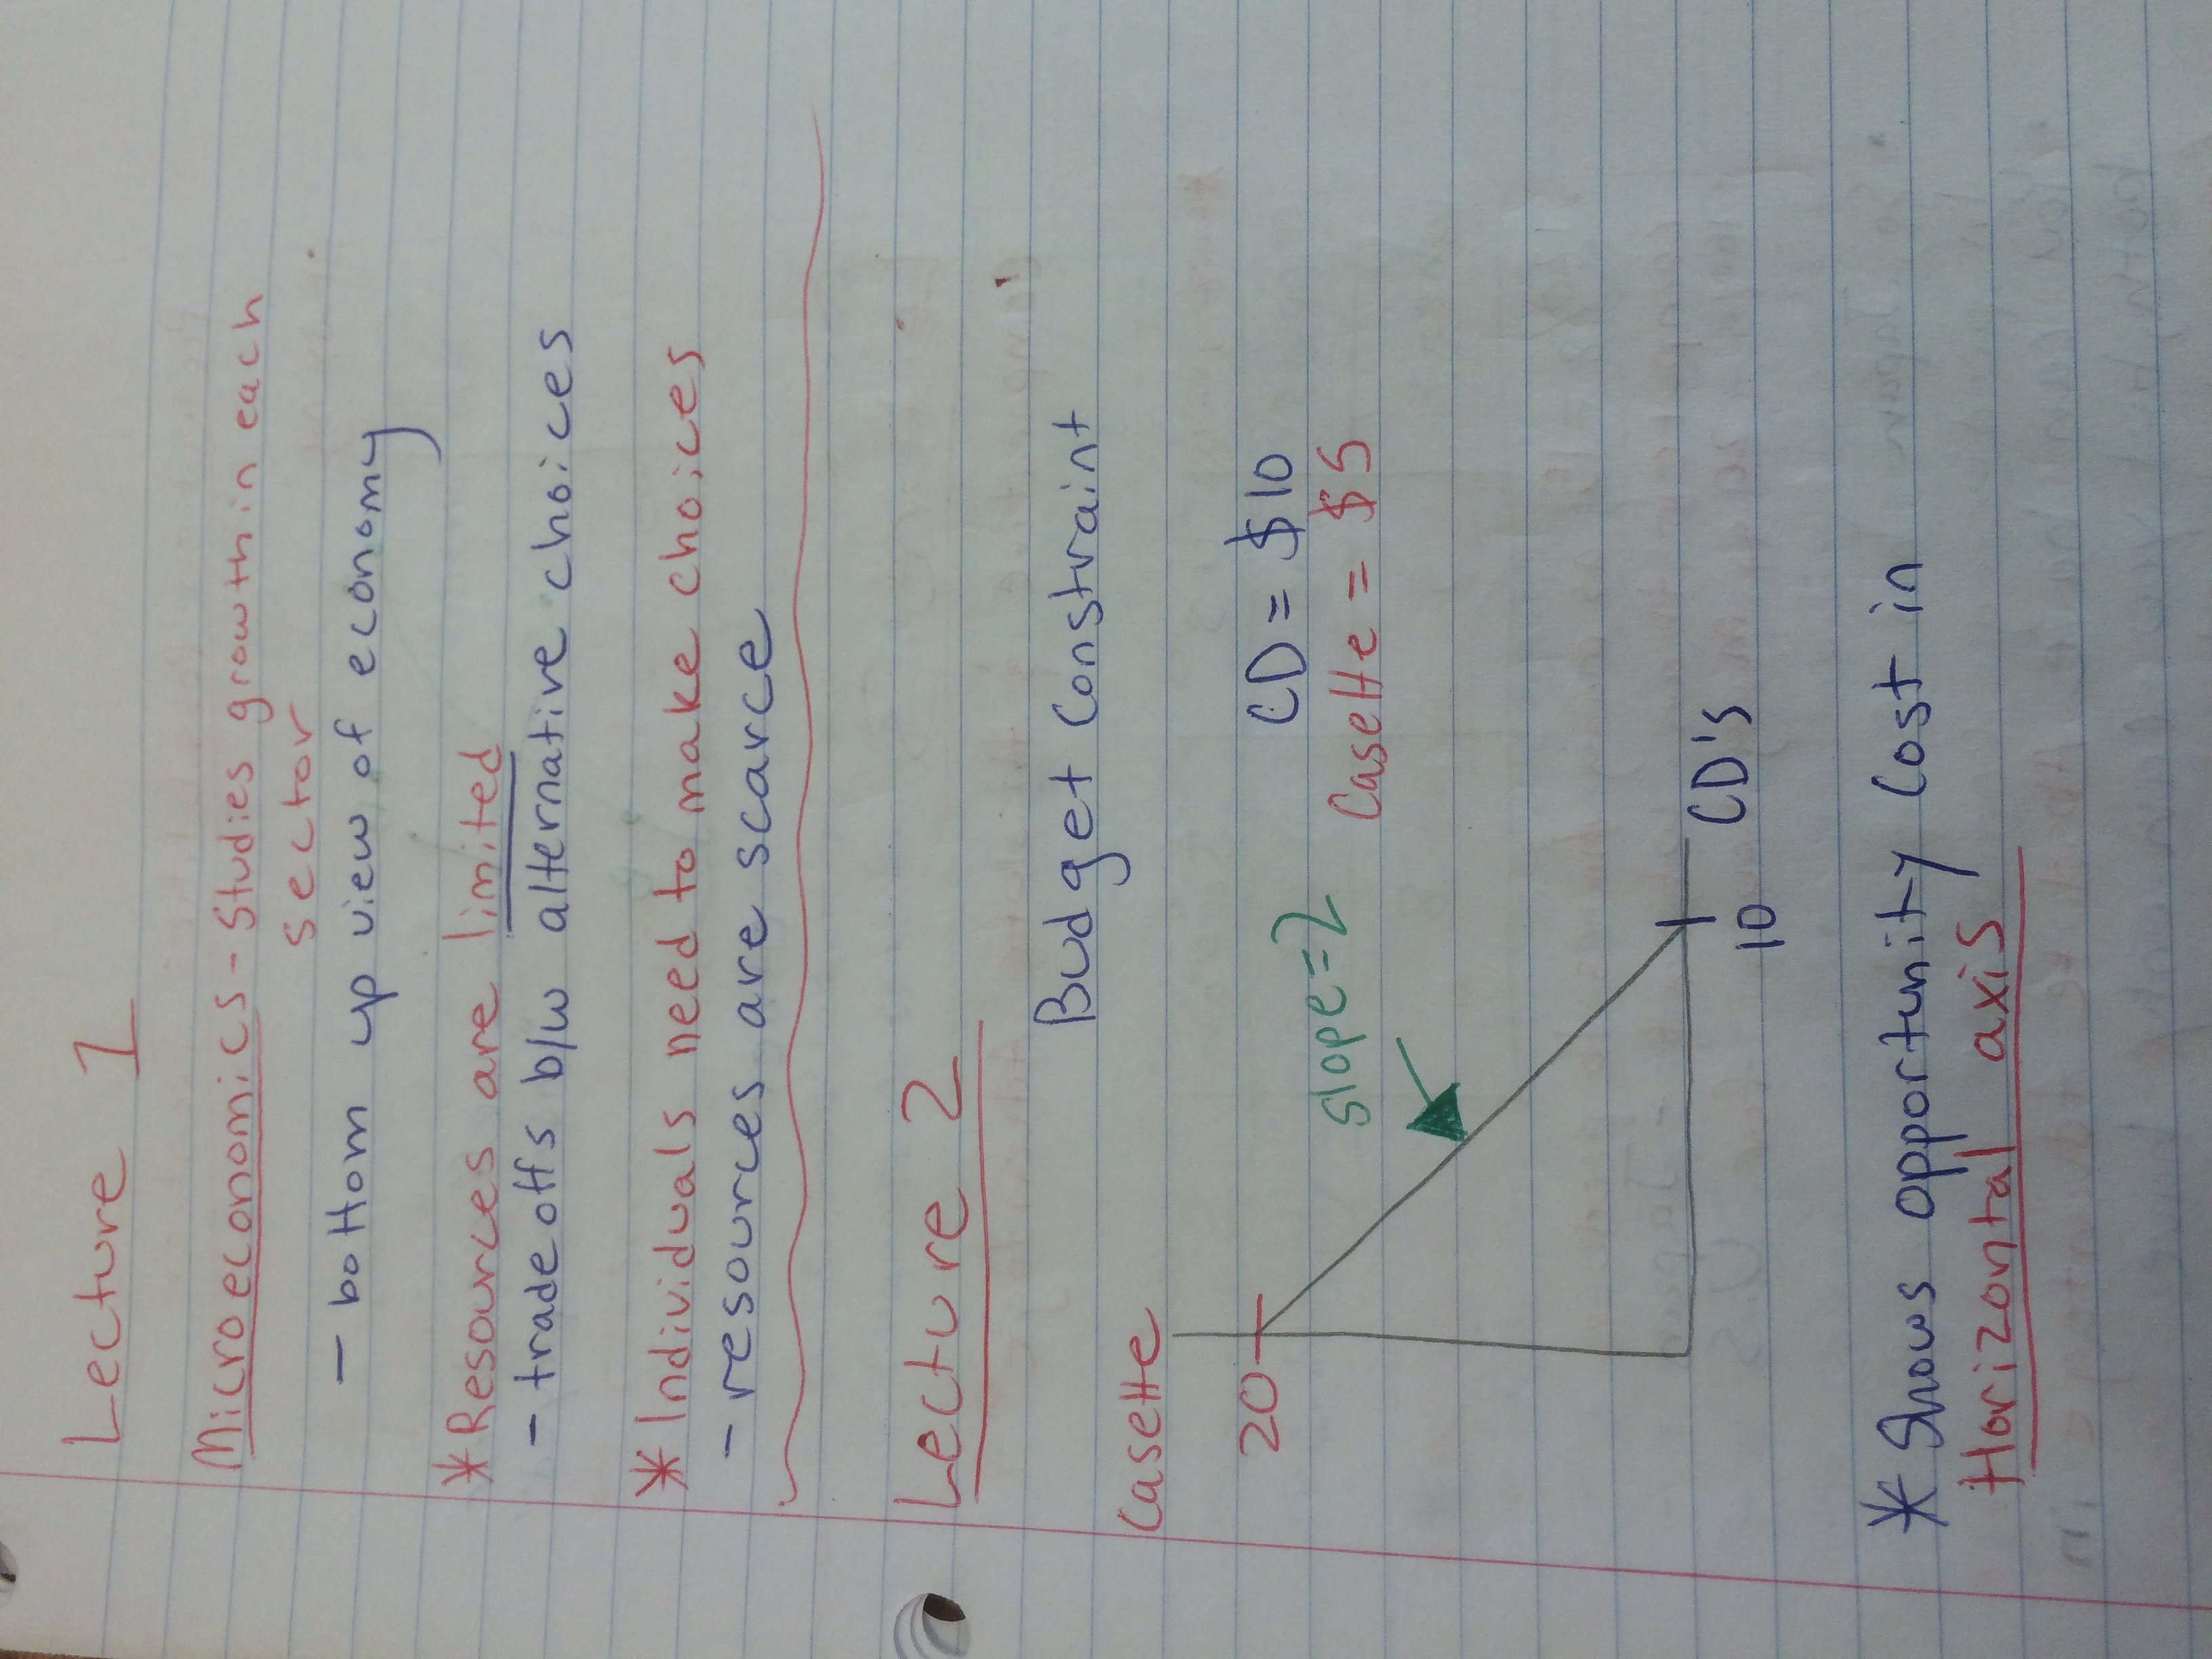 Lecture 1
Microeconomics - Studies growth in each
sector
- bottom up view of economy
* Resources are limited
- trade offs b/w alternative choices
* Individuals need to make choices
- resources are scarce
Lecture 2
Budget Constraint
Casette
20
CD = $10
Casette = $5
slope=2
10
CD's
* Shows opportunity Cost in
Horizontal axis